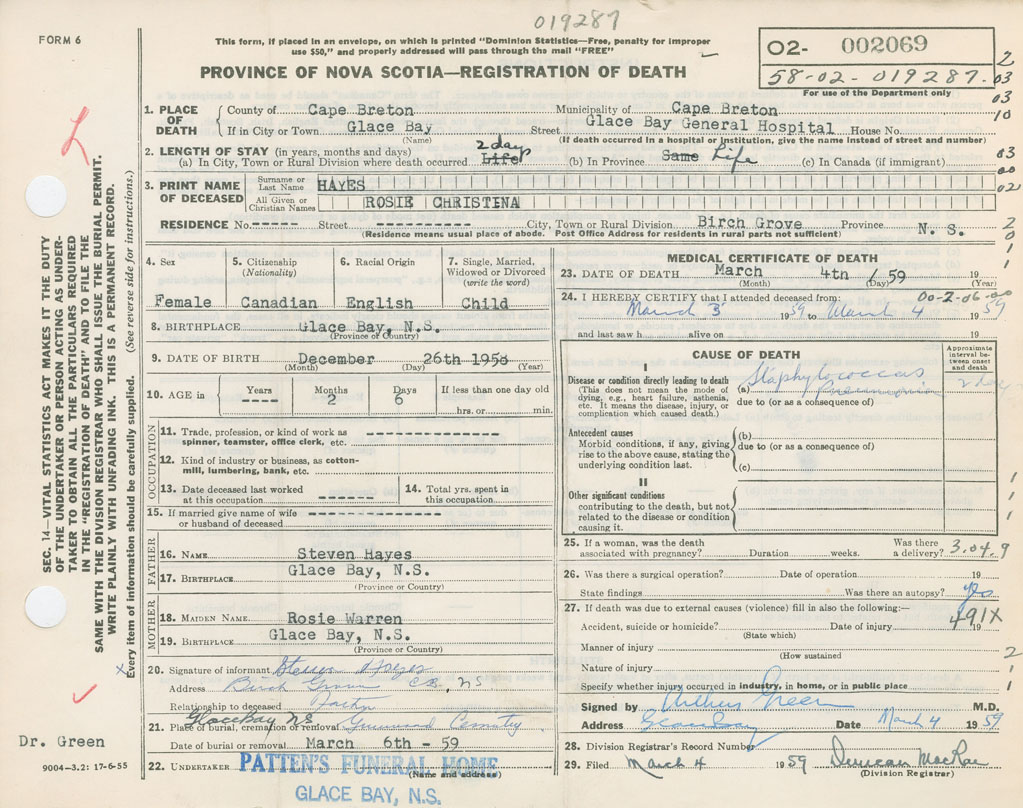 019287
FORM 6
This form, if placed in an envelope, on which is printed "Dominion Statistics—Free, penalty for improper
use $50," and properly addressed will pass through the mail "FREE"
PROVINCE OF NOVA SCOTIA—REGISTRATION OF DEATH
O2- 002069
58-02-019287.
For use of the Department only
2
03
03
10
03
00
02
2
0
1
1
SEC. 14—VITAL STATISTICS ACT MAKES IT THE DUTY
OF THE UNDERTAKER OR PERSON ACTING AS UNDER-
TAKER TO OBTAIN ALL THE PARTICULARS REQUIRED
IN THE "REGISTRATION OF DEATH" AND TO FILE THE
SAME WITH THE DIVISION REGISTRAR WHO SHALL ISSUE THE BURIAL PERMIT.
WRITE PLAINLY WITH UNFADING INK. THIS IS A PERMANENT RECORD.
Every item of information should be carefully supplied. (See reverse side for instructions.)
1. PLACE OF DEATH
County of Cape Breton Municipality of Cape Breton
If in City or Town Glace Bay Street Glace Bay General Hospital House No.
(Name) (If death occurred in a hospital or institution, give the name instead of street and number)
2. LENGTH OF STAY (in years, months and days)
(a) In City, Town or Rural Division where death occurred Life 2 days (b) In Province Same Life (c) In Canada (if immigrant)
3. PRINT NAME OF DECEASED
Surname or Last Name HAYES
All Given or Christian Names ROSIE CHRISTINA
RESIDENCE No. ------ Street ------ City, Town or Rural Division Birch Grove Province N. S.
(Residence means usual place of abode. Post Office Address for residents in rural parts not sufficient)
4. Sex Female
5. Citizenship (Nationality) Canadian
6. Racial Origin English
7. Single, Married, Widowed or Divorced (write the word) Child
8. BIRTHPLACE Glace Bay, N.S.
(Province or Country)
9. DATE OF BIRTH December 26th 1958
(Month) (Day) (Year)
10. AGE in Years ---- Months 2 Days 6 If less than one day old
hrs. or min.
OCCUPATION
11. Trade, profession, or kind of work as
spinner, teamster, office clerk, etc. ----------------
12. Kind of industry or business, as cotton-
mill, lumbering, bank, etc.
13. Date deceased last worked
at this occupation ------
14. Total yrs. spent in
this occupation
15. If married give name of wife
or husband of deceased ----------------
FATHER
16. NAME Steven Hayes
17. BIRTHPLACE Glace Bay, N.S.
(Province or Country)
MOTHER
18. MAIDEN NAME Rosie Warren
19. BIRTHPLACE Glace Bay, N.S.
(Province or Country)
x
20. Signature of informant Steven Hayes
Address Birch Grove C.B., NS
Relationship to deceased Father
21. Place of burial, cremation or removal Glace Bay NS Greenwood Cemetry
Date of burial or removal March 6th - 59
22. UNDERTAKER PATTEN'S FUNERAL HOME
(Name and address)
GLACE BAY, N.S.
Dr. Green
9004-3.2: 17-6-55
MEDICAL CERTIFICATE OF DEATH
23. DATE OF DEATH March 4th / 59 19
(Month) (Day) (Year)
24. I HEREBY CERTIFY that I attended deceased from: 00-2-06-00
March 3 1959 to March 4 1959
and last saw h alive on 19
CAUSE OF DEATH
Approximate interval between onset and death
I
Disease or condition directly leading to death
(This does not mean the mode of
dying, e.g., heart failure, asthenia,
etc. It means the disease, injury, or
complication which caused death.)
(a) Staphylococcus pneumonia 2 day
due to (or as a consequence of)
Antecedent causes
Morbid conditions, if any, giving
rise to the above cause, stating the
underlying condition last.
(b)
due to (or as a consequence of)
(c)
II
Other significant conditions
contributing to the death, but not
related to the disease or condition
causing it.
1
1
1
25. If a woman, was the death
associated with pregnancy? Duration weeks. Was there
a delivery? 3.04.9
26. Was there a surgical operation? Date of operation 19
State findings Was there an autopsy? yes
27. If death was due to external causes (violence) fill in also the following:—
491X
Accident, suicide or homicide? Date of injury 19
(State which)
Manner of injury 2
(How sustained
Nature of injury 1
Specify whether injury occurred in industry, in home, or in public place 1
Signed by Arthur Green M.D.
Address Glace Bay Date March 4 1959
28. Division Registrar's Record Number
29. Filed March 4 1959 Duncan MacRae
(Division Registrar)